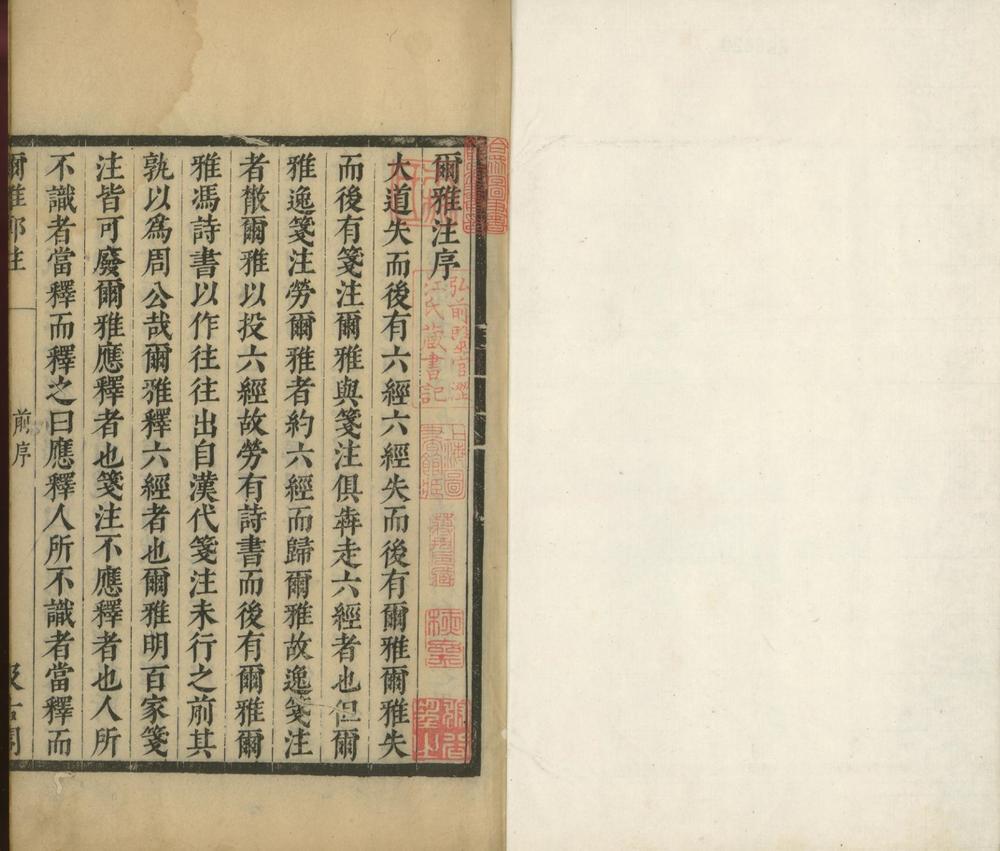 爾雅注序
大道失而後有六經六經失而後有爾雅爾雅失
而後有箋注爾雅與箋注俱犇走六經者也但爾
雅逸箋注勞爾雅者約六經而歸爾雅故逸箋注
者散爾雅以投六經故勞有詩書而後有爾雅爾
雅馮詩書以作往往出自漢代箋注未行之前其
孰以爲周公哉爾雅釋六經者也爾雅明百家箋
注皆可廢爾雅應釋者也箋注不應釋者也人所
不識者當釋而釋之曰應釋人所不識者當釋而
爾雅鄭注
前序
汲古閣
弘前醫官澀
江氏藏書記